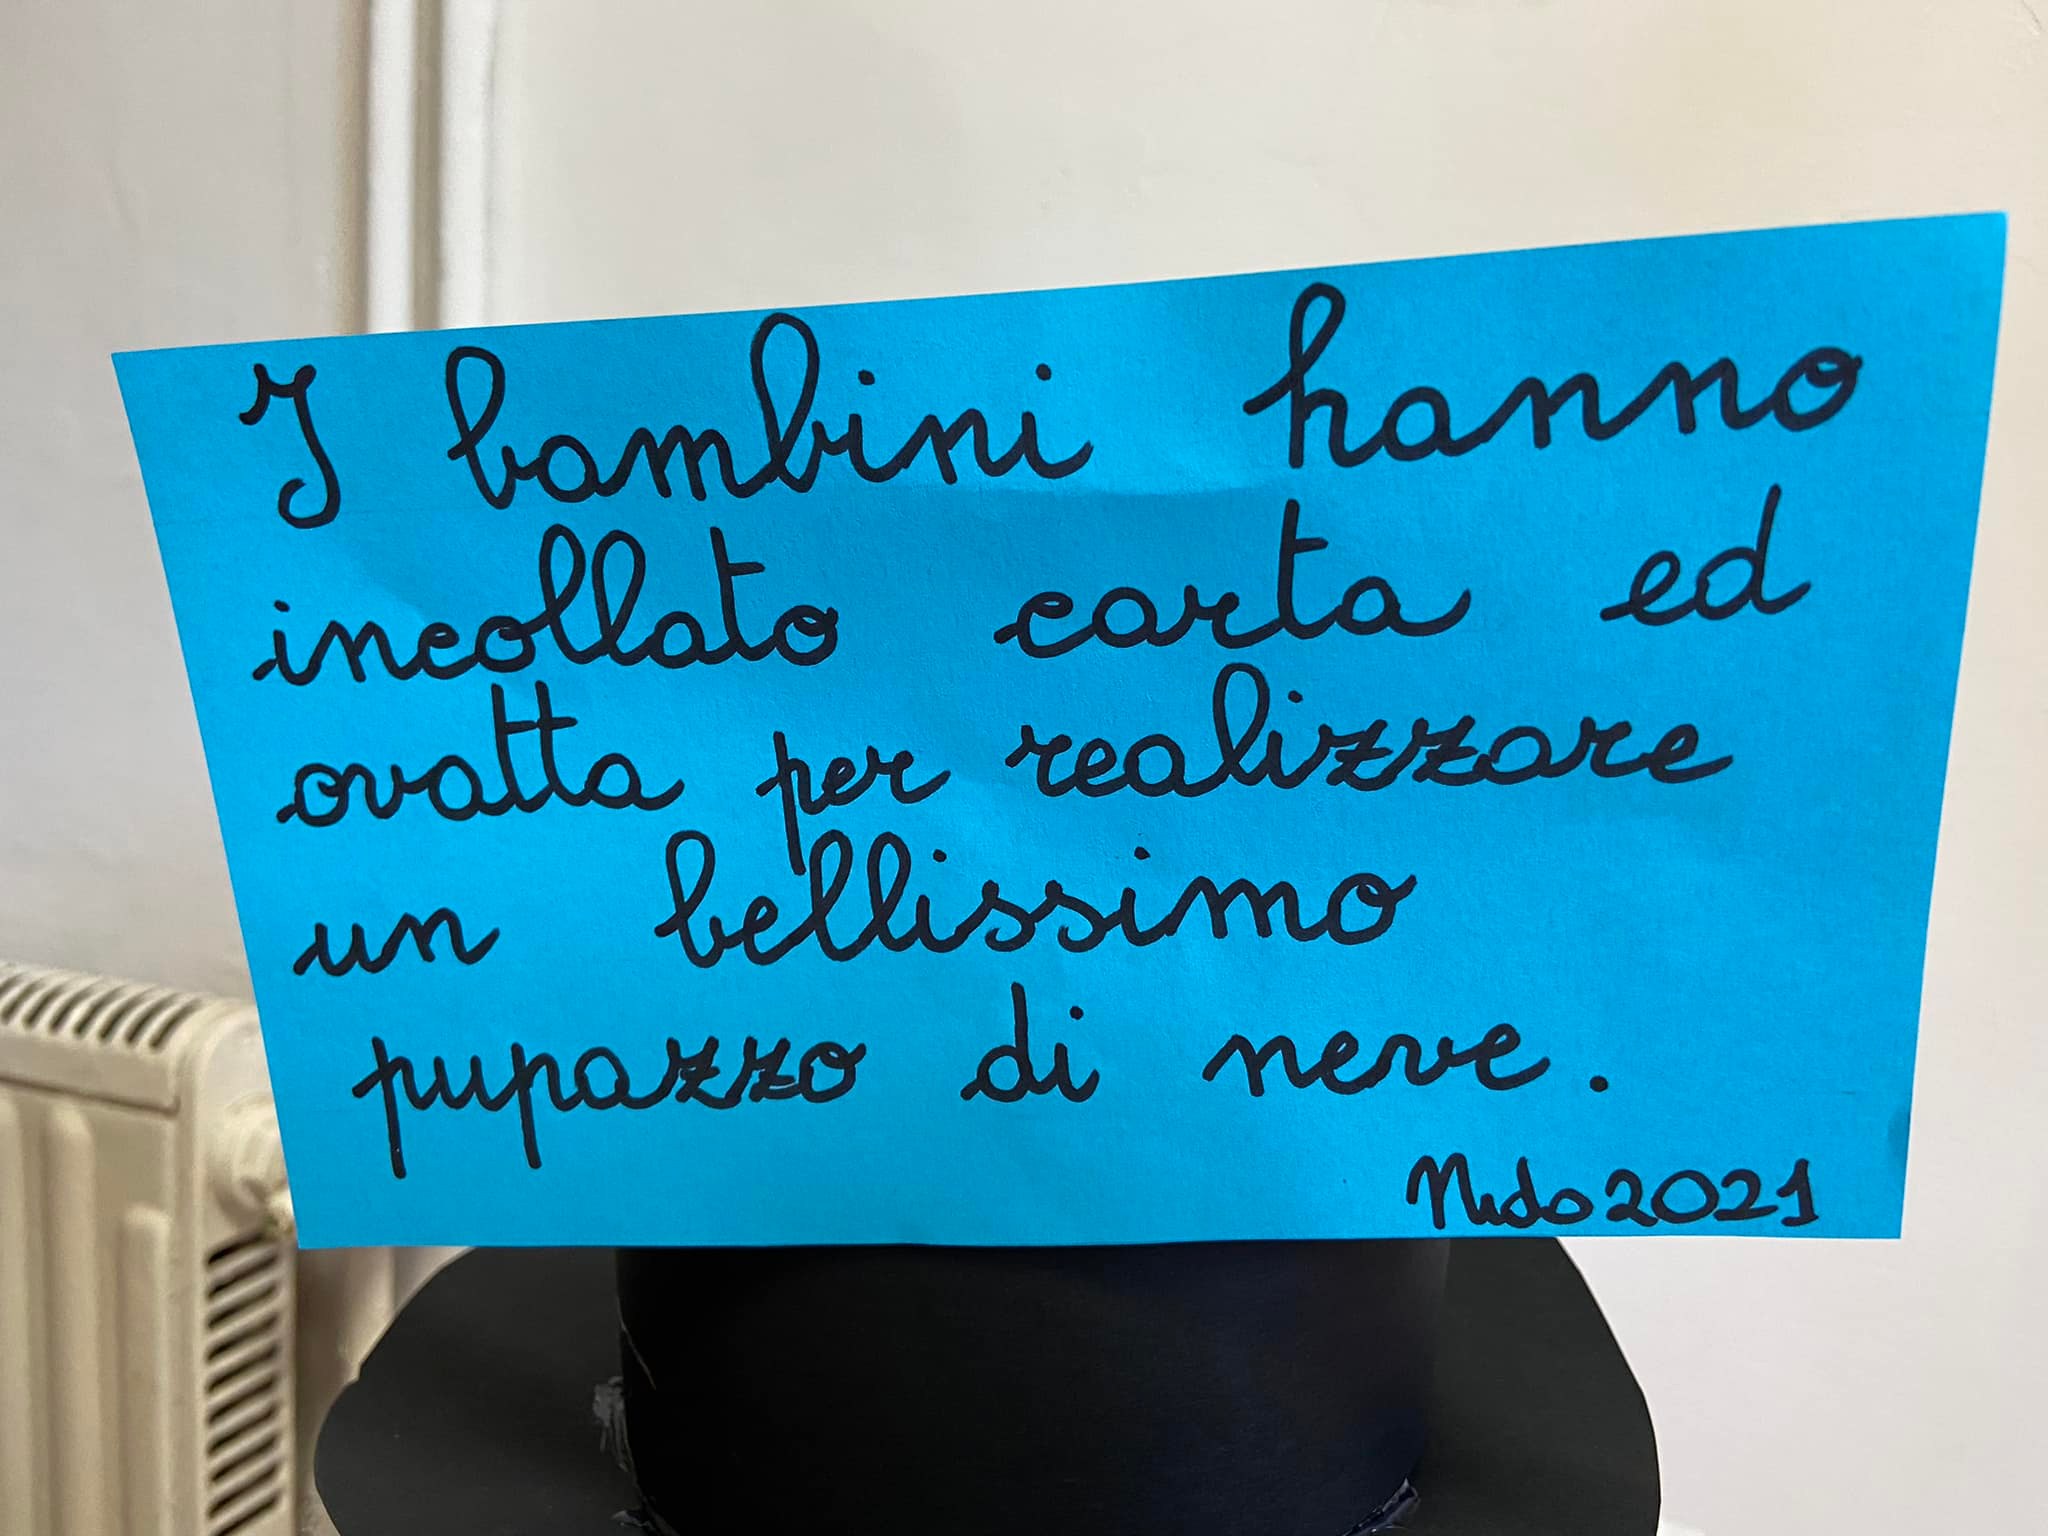 I bambini hanno
incollato carta ed
ovatta per realizzare
un bellissimo
pupazzo di neve.
Nido 2021